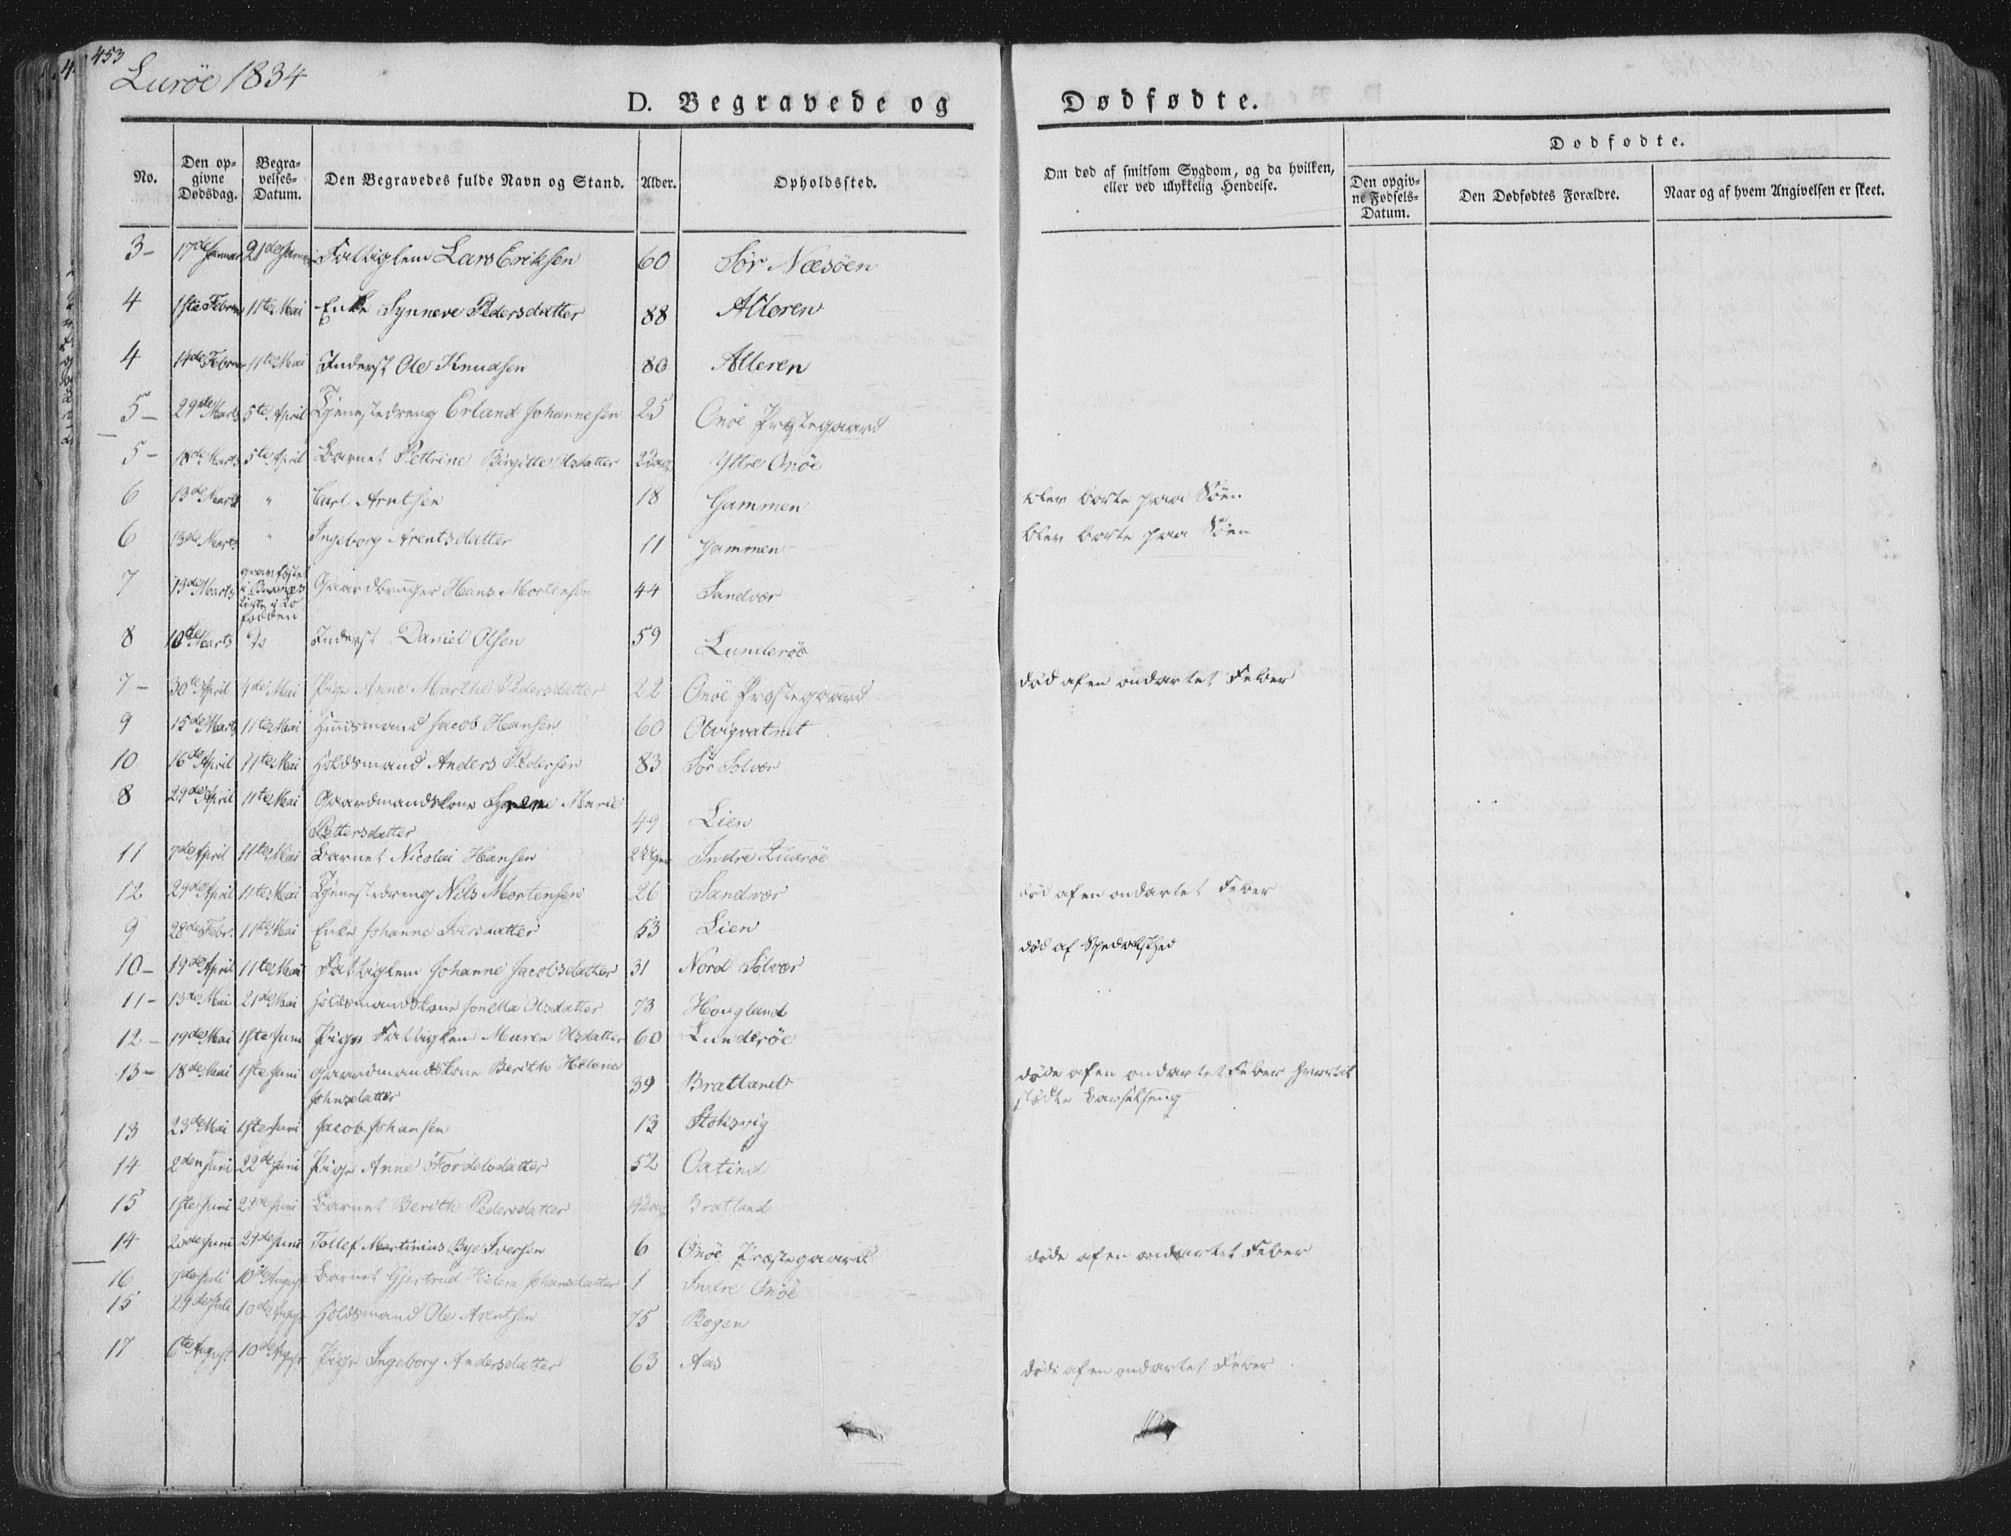 453
Lurøe 1834
D. Begravede og Dødfødte.
No. Den opgivne Dødsdag. Begravelses-Datum. Den Begravedes fulde Navn og Stand. Alder. Opholdssted. Om død af smitsom Sygdom, og da hvilken, eller ved ulykkelig Hendelse. Dødfødte.
Den opgivne Fødsels-Datum. Den Dødfødtes Forældre. Naar og af hvem Angivelsen er skeet.
3- 17de Januar 21de Januar Fattiglem Lars Eriksen 60 Sør Næsøen
4 1ste Februar 11te Mai Enke Synneve Pedersdatter 88 Alteren
4 14de Februar 11te Mai Inderst Ole Knudsen 80 Alteren
5- 29de Marts 5te April Tjenestedreng Erland Johannesen 25 Onøe Præstegaard
5- 18de Marts 5te April Barnet Pettrine Birgitte Olsdatter Yttre Onøe
6 13de Marts " Carl Arntsen 18 Gammen blev borte paa Søen
6 13de Marts " Ingeborg Arentsdatter 11 Gammen blev borte paa Søen
7 13de Marts gravfæstet i Lofodden Gaardbruger Hans Mortensen 44 Sandvær
8 10de Marts Do Inderst Daniel Olsen 59 Lunderøe
7- 30te April 4de Mai Pige Anne Marthe Pedersdatter 22 Onøe Præstegaard død af en ondartet Feber
9 15de Marts 11te Mai Huusmand Jacob Hansen 60 Olvigvatnet
10 16de April 11te Mai Holdsmand Anders Pedersen 83 Sør Solvær
8 29de April 11te Mai Gaardmandskone Marie
Pettersdatter 49 Lien
11 7de April 11te Mai Barnet Nicolai Hansen Indre Qvarøe
12 29de April 11te Mai Tjenestedreng Nils Mortensen 26 Sandvær død af en ondartet Feber
9 28de Febr. 11te Mai Enke Johanne Iversdatter 53 Lien død af Spedalskhed
10- 19de April 11te Mai Fattiglem Johanne Jacobsdatter 31 Nord Solvær
11- 13de Mai 21de Mai Holdsmandskone Jonetta Olsdatter 73 Hougland
12- 19de Mai 1ste Juni Pige Fattiglem Maren Olsdatter 60 Lunderøe
13- 18de Mai 1ste Juni Gaardmandskone Berith Helena
Johnsdatter 39 Bratland døde af en ondartet Feber
Barselseng
13 23de Mai 1ste Juni Jacob Johansen 13 Stoksvig
14 2den Juni 22de Juni Pige Anne Tordelsdatter 52
15 1ste Juni 22de Juni Barnet Berith Pedersdatter Bratland
14 20de Juni 27de Juni Tollef Martinius Bye Iversen 6 Onøe Præstegaard døde af en ondartet Feber
16 Juli 10de August Barnet Gjertrud Helena Johansdatter 1 Indre Onøe
15 29de Juli 10de August Holdsmand Ole Arentsen 75 Bogen
17 6te August 10de August Pige Ingeborg Andersdatter 63 Aas døde af en ondartet Feber